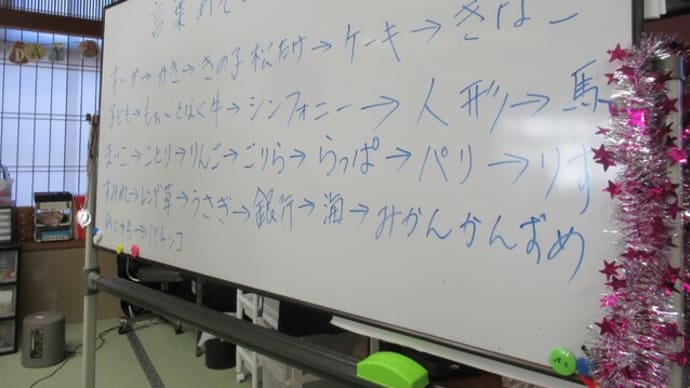 DAY
言葉
すいか→かき→きの子 松だけ→ケーキ→きなー
子ども→もぉ〜となく牛→シンフォニー→人形→馬
まいこ→ことり→りんご→ごりら→らっぱ→パリ→りす
すみれ→レンゲ草→うさぎ→銀行→海→みかんかんずめ
めじから→パチンコ